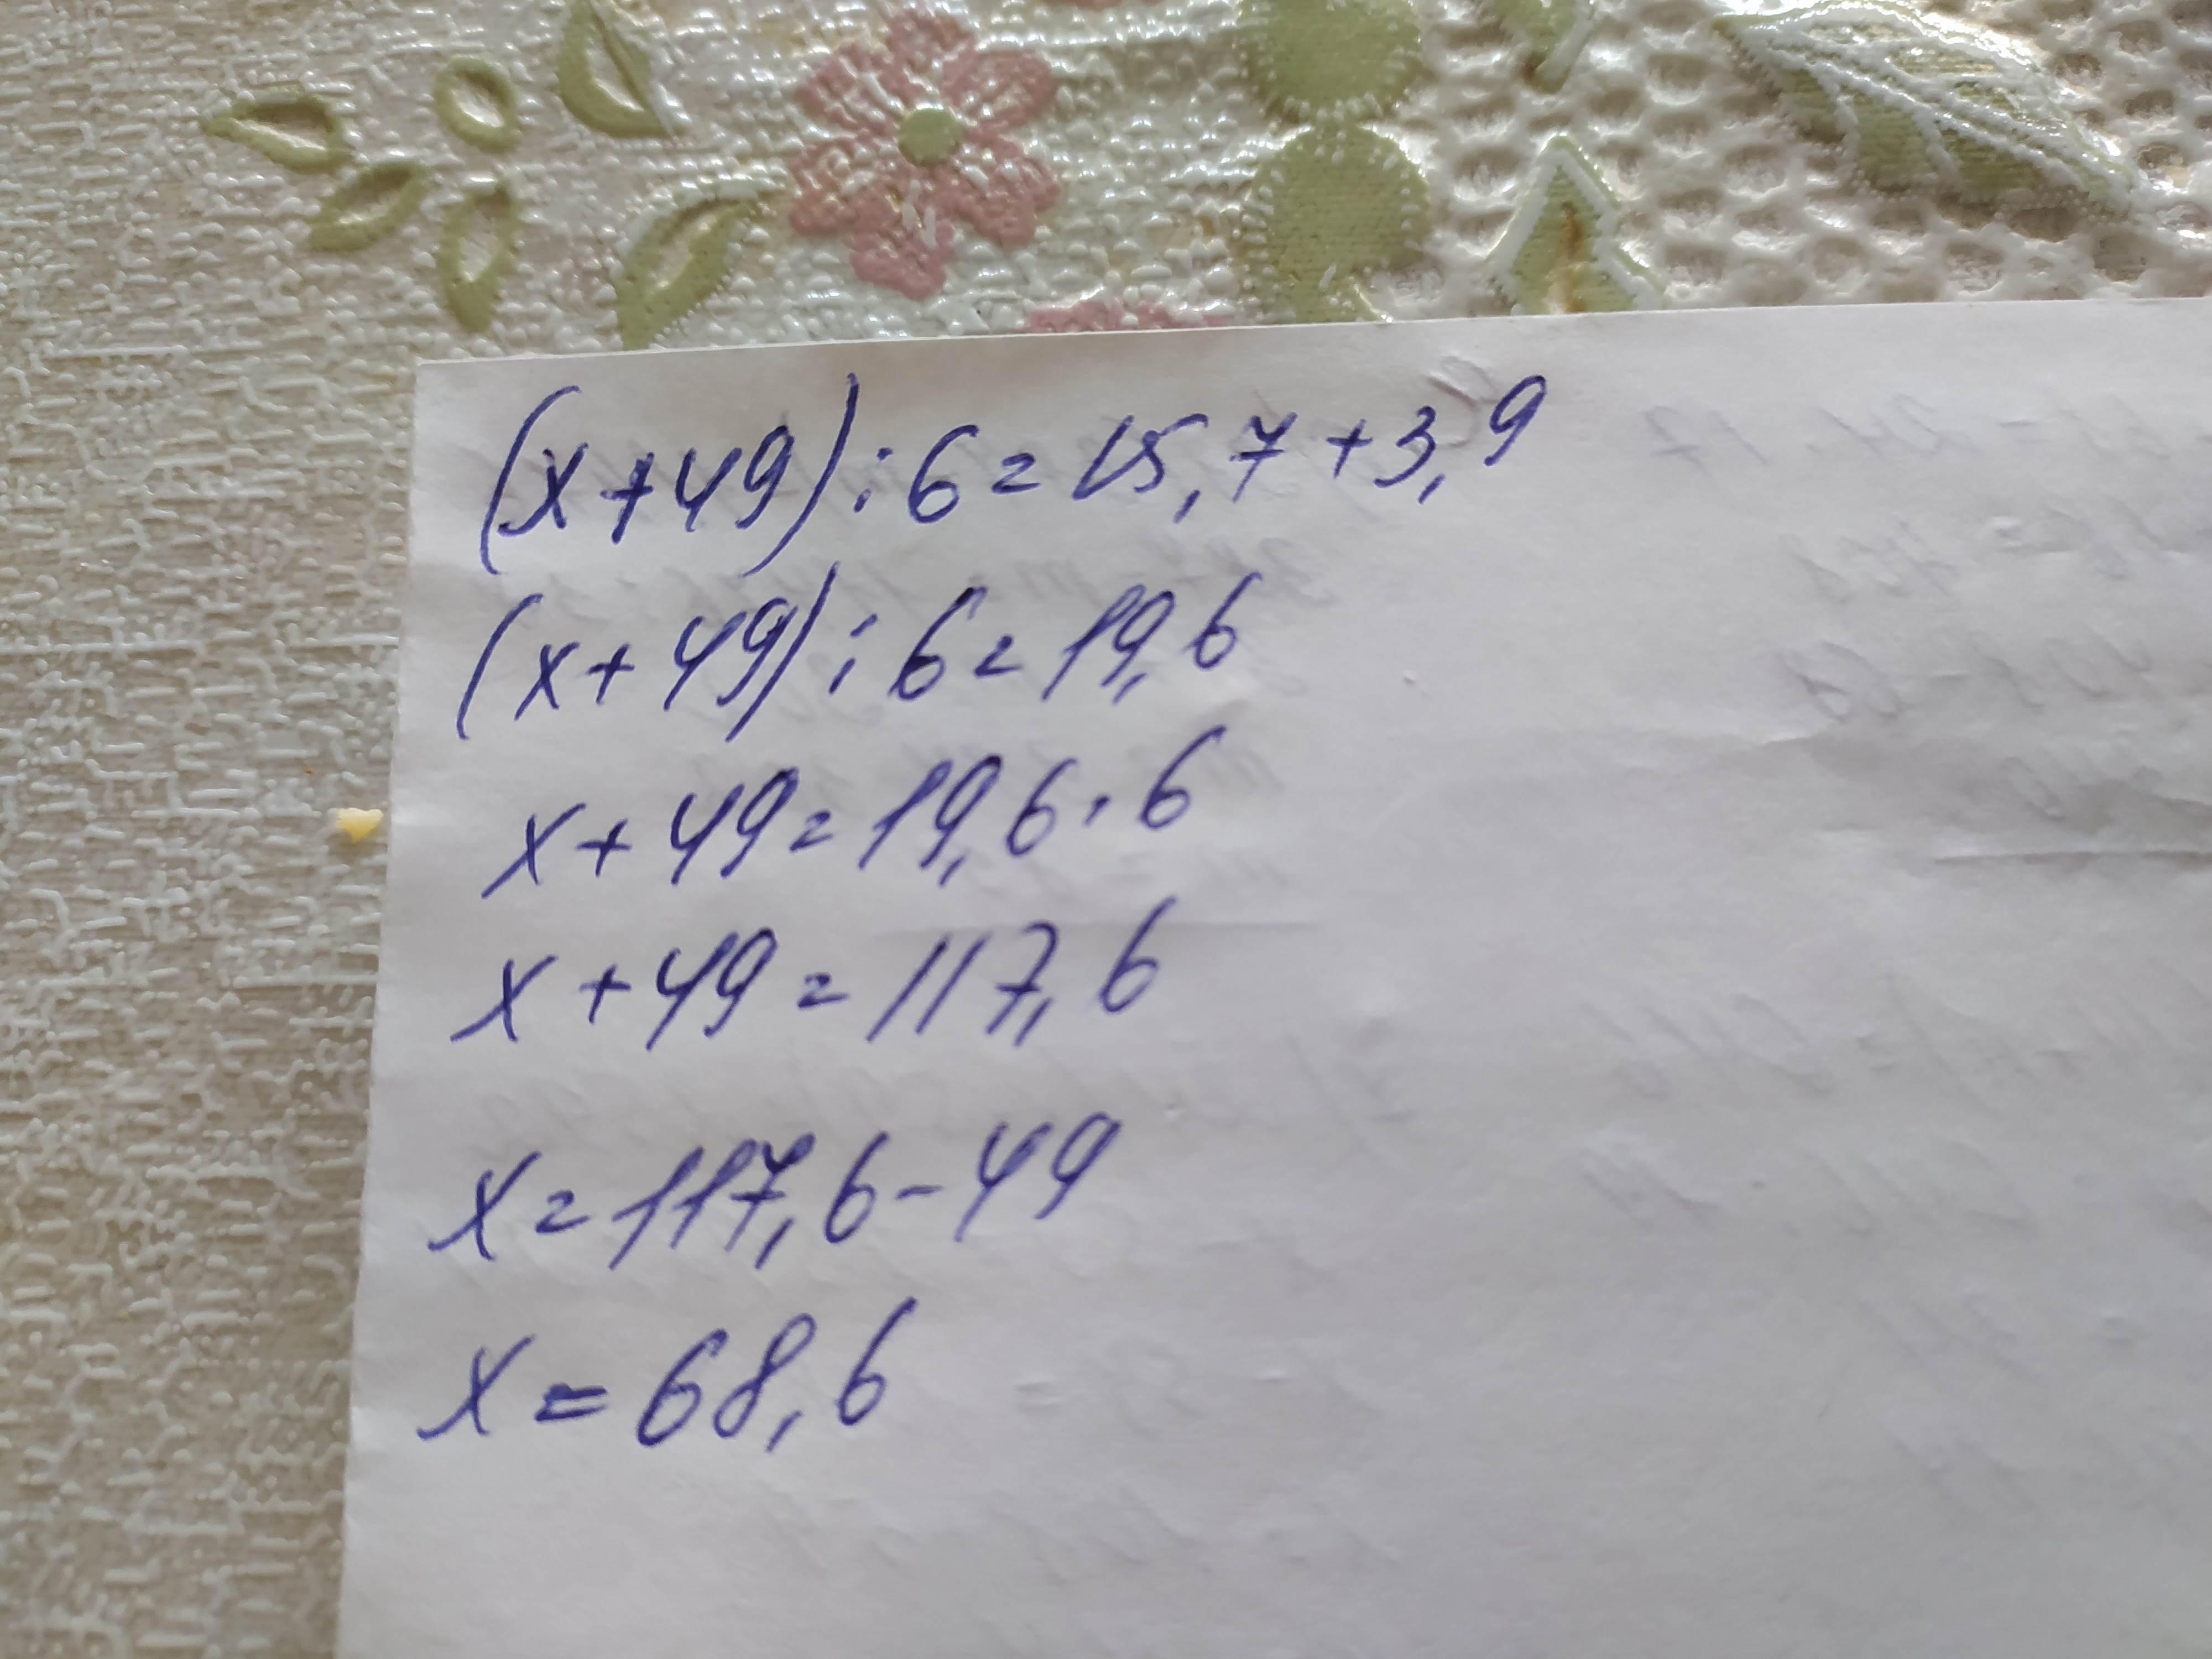 (x+49):6=15,7+3,9
(x+49):6=19,6
x+49=19,6·6
x+49=117,6
x=117,6-49
x=68,6